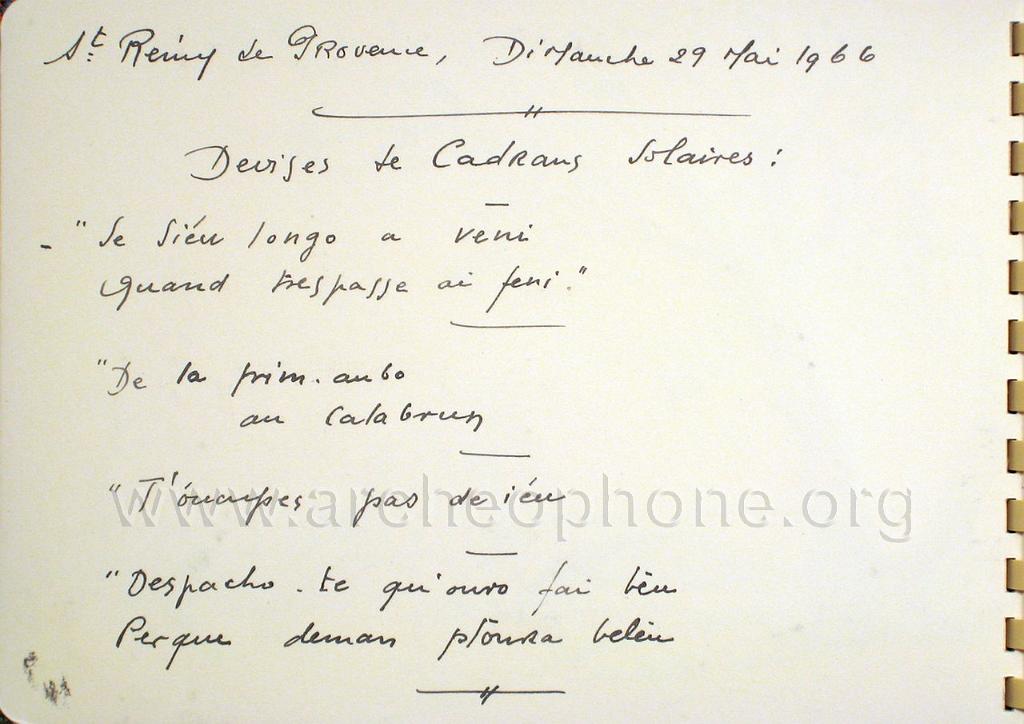 St Rémy de Provence, Dimanche 29 Mai 1966
Devises de Cadrans Solaires :
- "Se Siéu longo a veni
quand trespasse ai feni."
"De la prim-aubo
au Calabrun
"T'óucupes pas de iéu
"Despacho-te qu'ouro fai bèu
Perque deman plóura belèu
www.archeophone.org